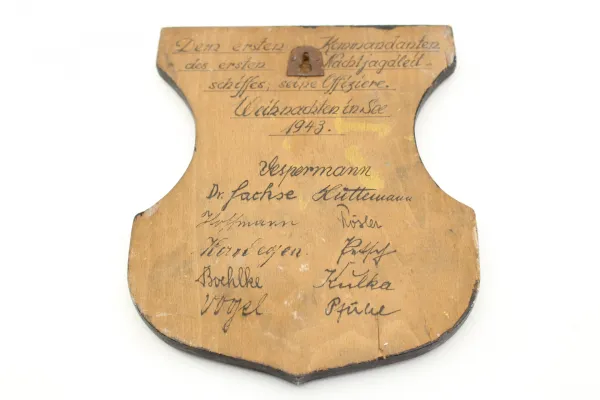 Dem ersten Kommandanten
des ersten Nachtjagdleit-
schiffes, seine Offiziere.
Weihnachten in See
1943.
Vespermann
Dr. Sachse Hüttemann
Hoffmann Rösler
Korndegen
Boehlke Kulka
Vogel Pfuhe